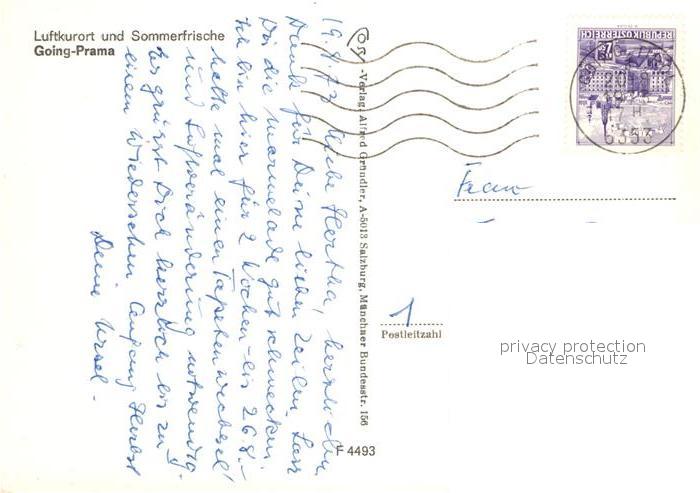 Luftkurort und Sommerfrische
Going-Prama
19.8.73 Liebe Hertha, herzlichen
Dank für Deine lieben Zeilen. Lass
Dir die Marmelade gut schmecken.
Ich bin hier für 2 Wochen - bis 26.8. -
hatte mal einen Tapetenwechsel
und Luftveränderung notwendig.
Es grüsst Dich herzlich bis zu
einem Wiedersehen Anfang Herbst
Deine Ursel.
-Verlag Alfred Gründler, A-5013 Salzburg, Münchner Bundesstr. 156
REPUBLIK ÖSTERREICH
6353
Frau
1
Postleitzahl
privacy protection
Datenschutz
F 4493